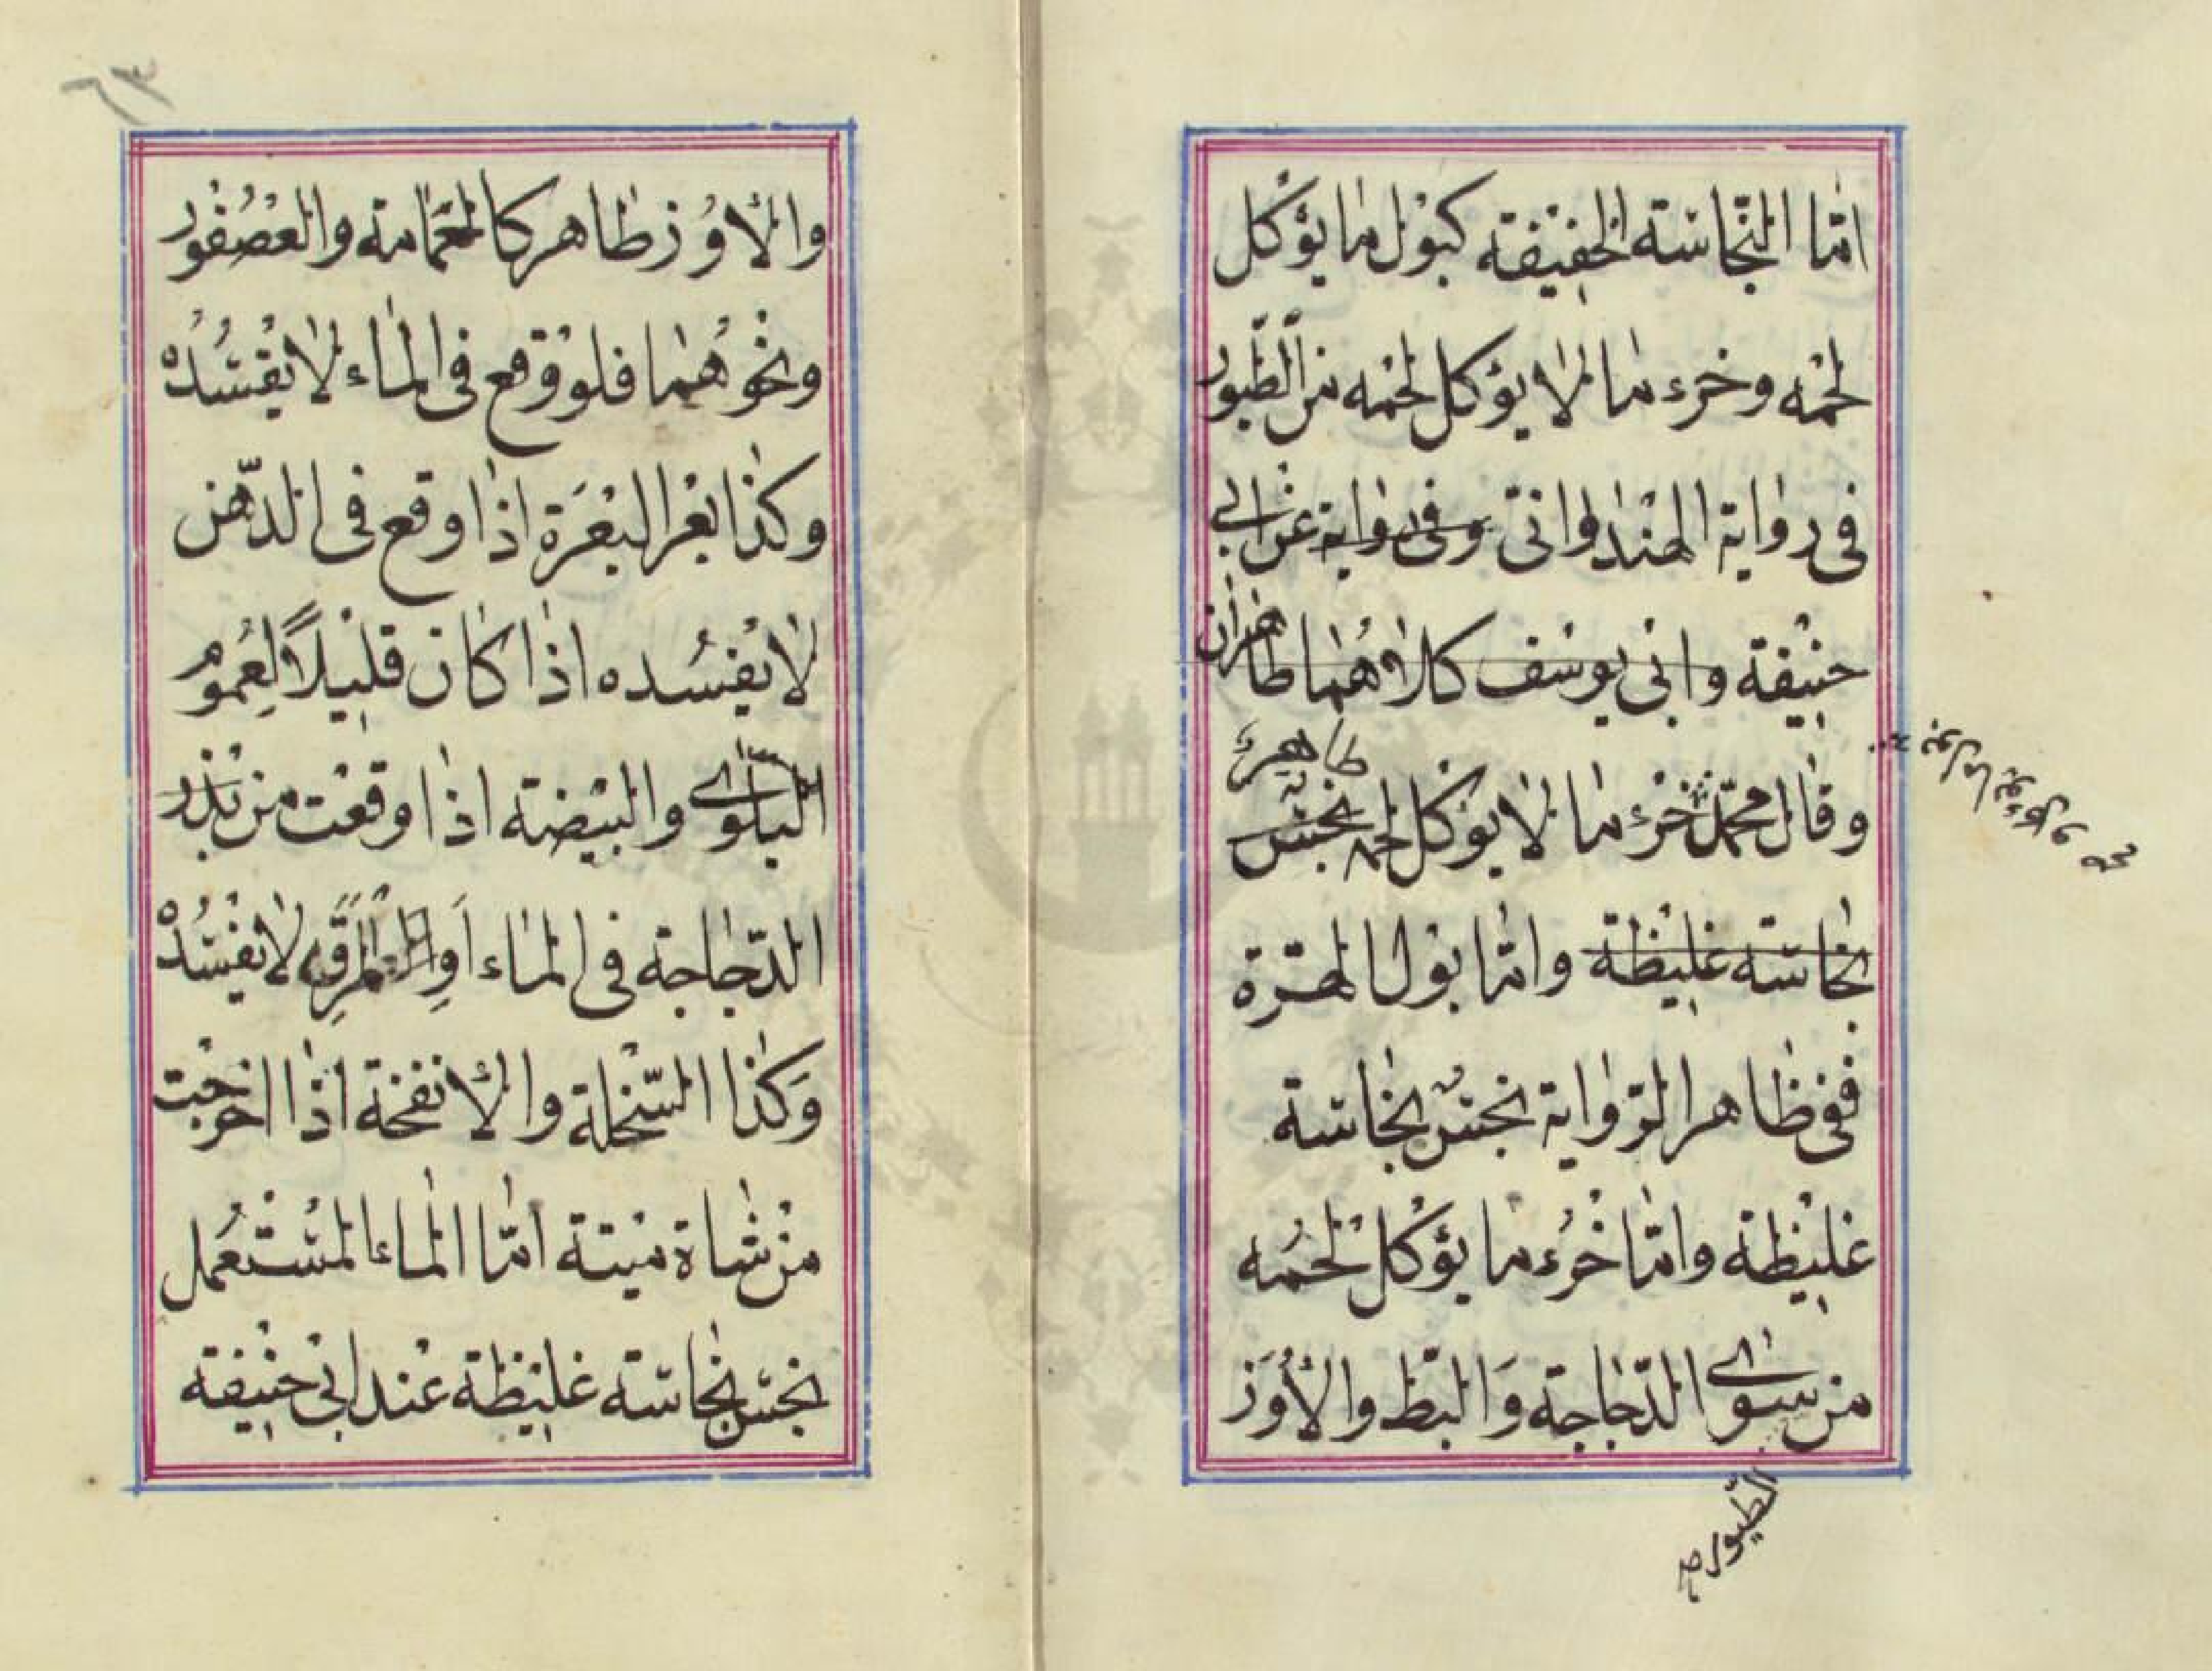 امّا النّجاسة الخفيفة كبول ما يؤكل
لحمه وخرء ما لا يؤكل لحمه من الطّيور
فى رواية الهندوانى وفى رواية عن ابى
حنيفة وابى يوسف كلاهما طاهران
طاهر
وقال محمّد خرء ما لا يؤكل لحمه نجس
نجاسة غليظة وامّا بول الهرّة
ففى ظاهر الرّواية نجس نجاسة
غليظة وامّا خرء ما يؤكل لحمه
من سوى الدّجاجة والبطّ والأوز
الطيور
٦٣
والأوز طاهر كالحمامة والعصفور
ونحوهما فلو وقع فى الماء لا يفسده
وكذا بعر البعرة اذا وقع فى الدّهن
لا يفسده اذا كان قليلاً لعموم
البلوى والبيضة اذا وقعت من
الدّجاجة فى الماء او المرق لا يفسده
وكذا السّخلة والأنفحة اذا اخرجت
من شاة ميتة امّا الماء المستعمل
نجس نجاسة غليظة عند ابى حنيفة